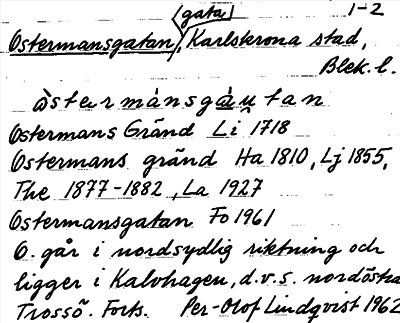 (gata) 1-2
Ostermansgatan, Karlskrona stad,
Blek. l.
òstermánsgàutan
Ostermans Gränd Li 1718
Ostermans gränd Ha 1810, Lj 1855,
The 1877-1882, La 1927
Ostermansgatan Fo 1961
O. går i nordsydlig riktning och
ligger i Kalvhagen, d.v.s. nordöstra
Trossö. Forts. Per-Olof Lindqvist 1962